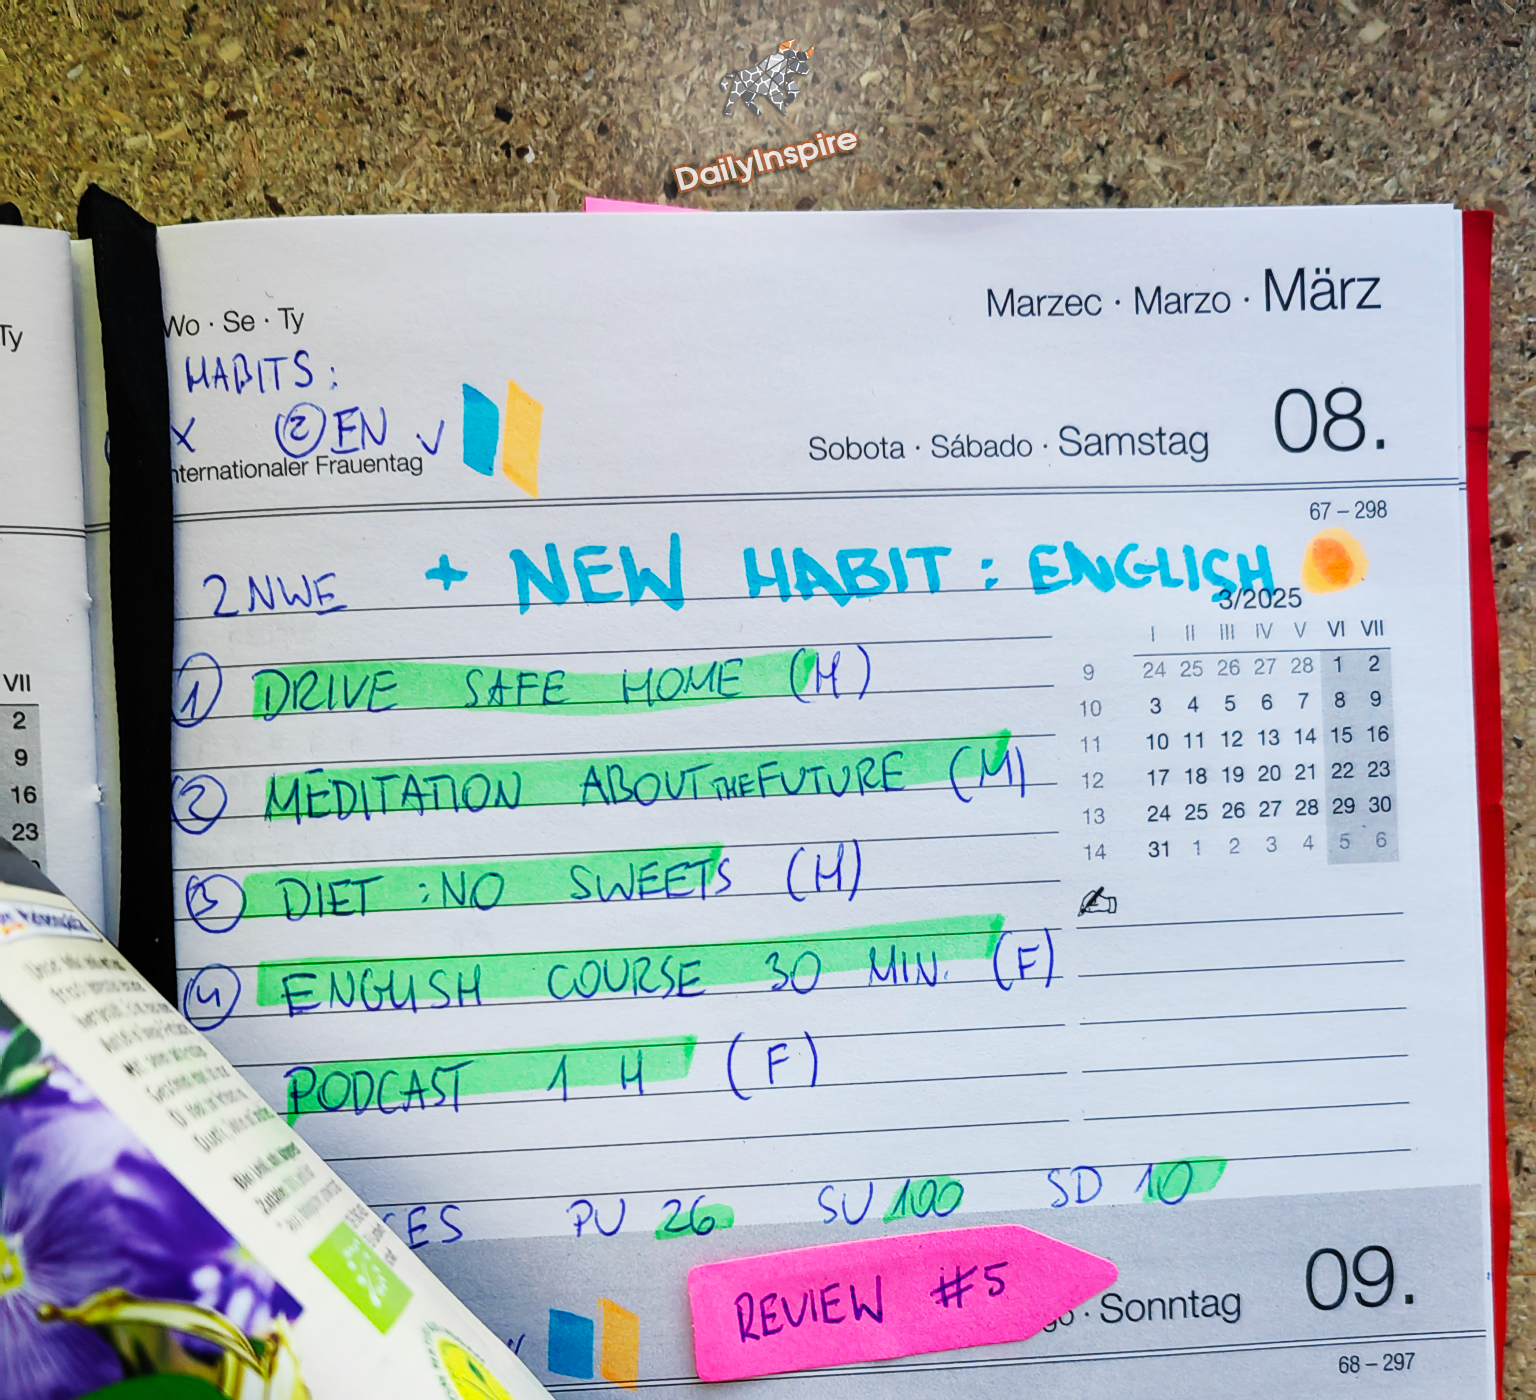 DailyInspire
Wo · Se · Ty
Marzec · Marzo · März
Ty
HABITS:
X ② EN ✓
Internationaler Frauentag
Sobota · Sábado · Samstag 08.
67 – 298
2NWE + NEW HABIT: ENGLISH
3/2025
I II III IV V VI VII
9 24 25 26 27 28 1 2
10 3 4 5 6 7 8 9
11 10 11 12 13 14 15 16
12 17 18 19 20 21 22 23
13 24 25 26 27 28 29 30
14 31 1 2 3 4 5 6
① DRIVE SAFE HOME (H)
② MEDITATION ABOUT THE FUTURE (M)
③ DIET: NO SWEETS (H)
④ ENGLISH COURSE 30 MIN. (F)
PODCAST 1 H (F)
PU 26 SU 100 SD 10
REVIEW #5
· Sonntag 09.
68 – 297
VII
2
9
16
23